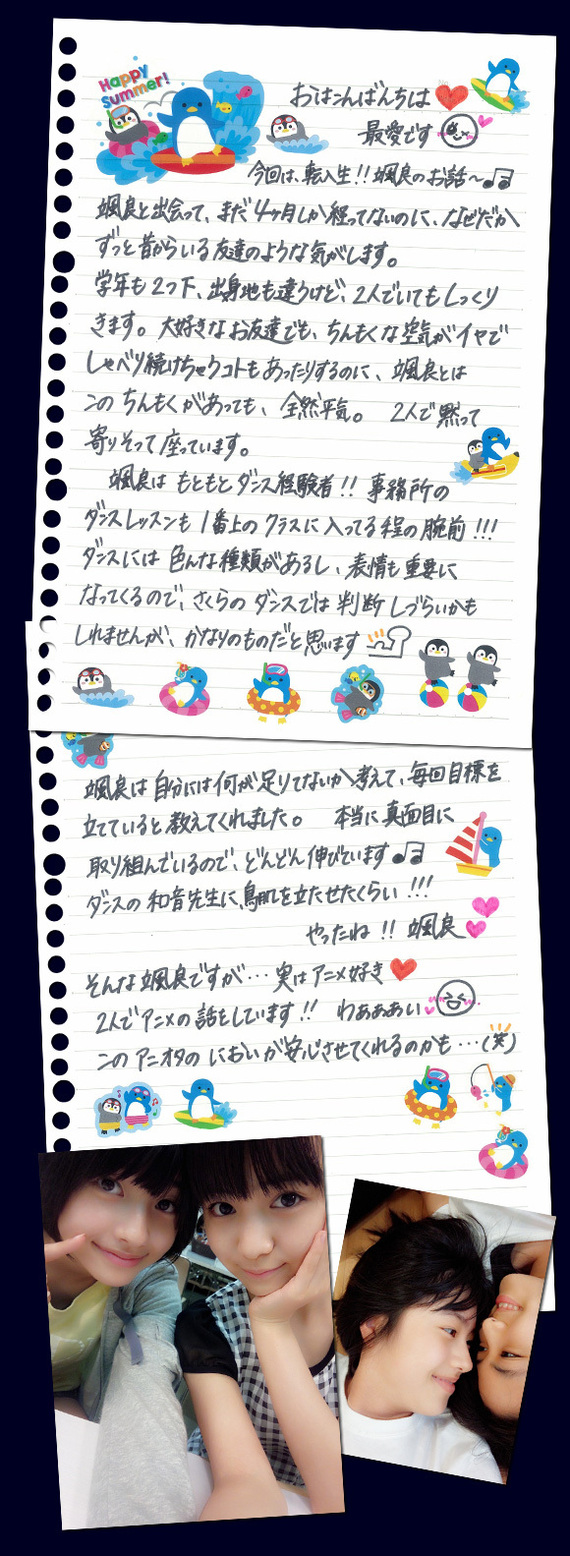 Happy
Summer!
おはこんばんちは
最愛です
今回は、転入生!! 颯良のお話～♫
颯良と出会って、まだ4ヶ月しか経ってないのに、なぜだか
ずっと昔からいる友達のような気がします。
学年も2つ下、出身地も違うけど、2人でいてもしっくり
きます。大好きなお友達でも、ちんもくな空気がイヤで
しゃべり続けちゃうコトもあったりするのに、颯良とは
このちんもくがあっても、全然平気。 2人で黙って
寄りそって座っています。
颯良はもともとダンス経験者!! 事務所の
ダンスレッスンも1番上のクラスに入ってる程の腕前!!!
ダンスには色んな種類があるし、表情も重要に
なってくるので、さくらのダンスでは判断しづらいかも
しれませんが、かなりのものだと思います
颯良は自分には何が足りてないか考えて、毎回目標を
立てていると教えてくれました。 本当に真面目に
取り組んでいるので、どんどん伸びています♫
ダンスの和音先生に、鳥肌を立たせたくらい!!!
やったね!! 颯良
そんな颯良ですが…実はアニメ好き
2人でアニメの話をしています!! わぁぁぁい
このアニオタのにおいが安心させてくれるのかも…(笑)